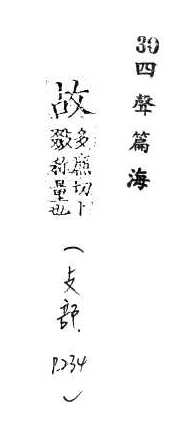 30 四聲篇海
敁
多廉切卜
敠称量也
(攴部 P234)